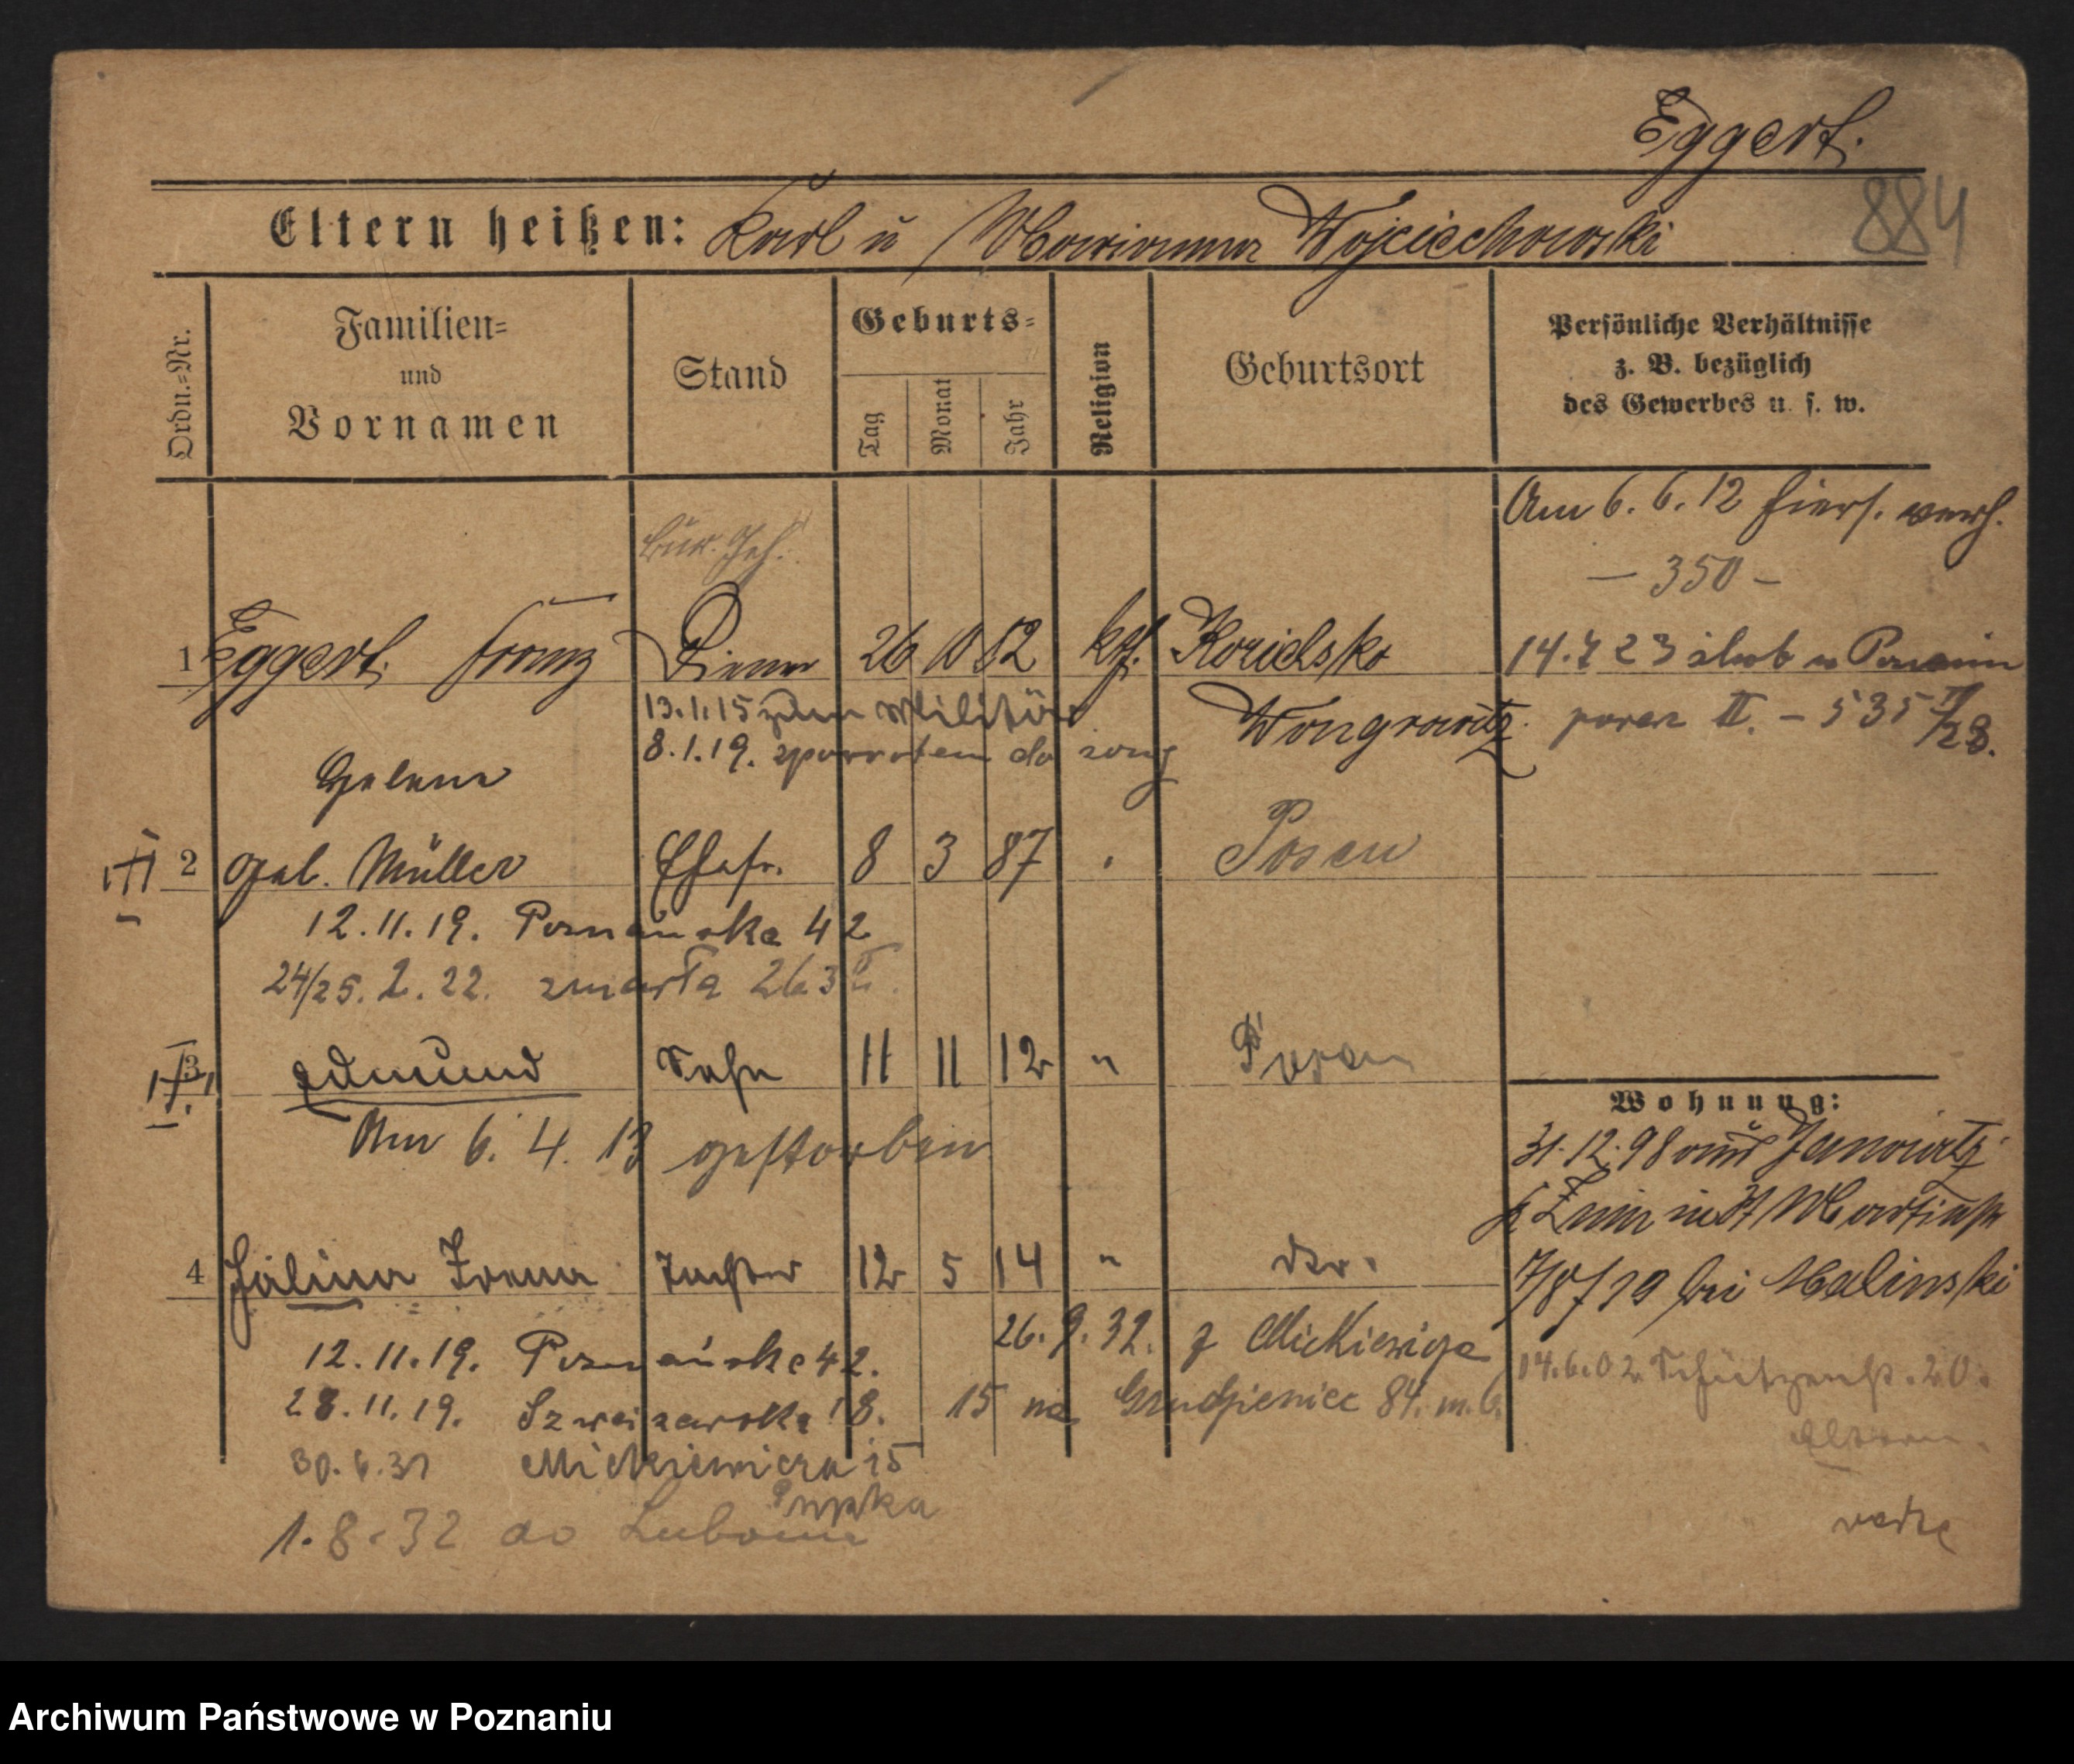 Eggert.
884
Eltern heißen: Karl u Marianna Wojciechowski
Ordn.-Nr.
Familien- und Vornamen
Stand
Geburts-
Tag
Monat
Jahr
Religion
Geburtsort
Persönliche Verhältnisse
z. B. bezüglich
des Gewerbes u. s. w.
Am 6.6.12 hiers. verh.
— 350 —
Bür. Geh.
1 Eggert Franz Diener 26 10 82 kgl.
14.7 23 ślub w
Wongrowitz
II. – 535 II/28.
13.1.15 zum Militär
8.1.19. zpowrotem do żony
Helene
2 geb. Müller Ehefr. 8 3 87 Posen
12.11.19. Poznańska 42
24/25. 2. 22. zmarła 263 II
3 Edmund Sohn 11 11 12 " Posen
Am 6. 4. 13 gestorben
Wohnung:
31.12.98 aus Janowitz
k. Znin in 37 Martinstr
7/8/19 bei Malinski
14.6.02 Schützenstr. 20.
Eltern.
4 Halina Irena Tochter 12 5 14 " do.
12.11.19. Poznańska 42.
28.11.19. Szwajzarska 18.
30.6.31 Mickiewicza 15
1.8.32 do Lubonia
26.9.32. z Mickiewicza
15 na Grudzieniec 84. m. 6.
Archiwum Państwowe w Poznaniu